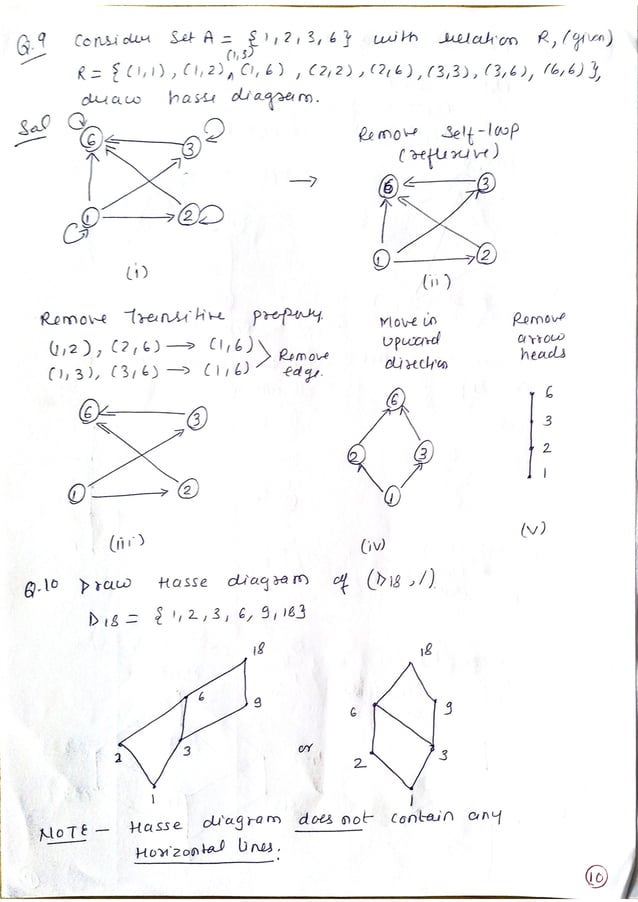 Q.9 Consider Set A = {1,2,3,6} with relation R, (given)
(1,3)
R = {(1,1), (1,2), (1,6), (2,2), (2,6), (3,3), (3,6), (6,6)},
draw hasse diagram.
Sol
6 3
1 2
(i)
→
Remove Self-loop
(reflexive)
6 3
1 2
(ii)
Remove Transitive property
(1,2), (2,6) → (1,6)
(1,3), (3,6) → (1,6)
Remove
edge.
6 3
1 2
(iii)
Move in
upward
direction
6
2 3
1
(iv)
Remove
arrow
heads
6
3
2
1
(v)
Q.10 Draw Hasse diagram of (D18, /)
D18 = {1,2,3,6,9,18}
18
6
9
2 3
1
or
18
6 9
2 3
1
NOTE - Hasse diagram does not contain any
Horizontal lines.
10